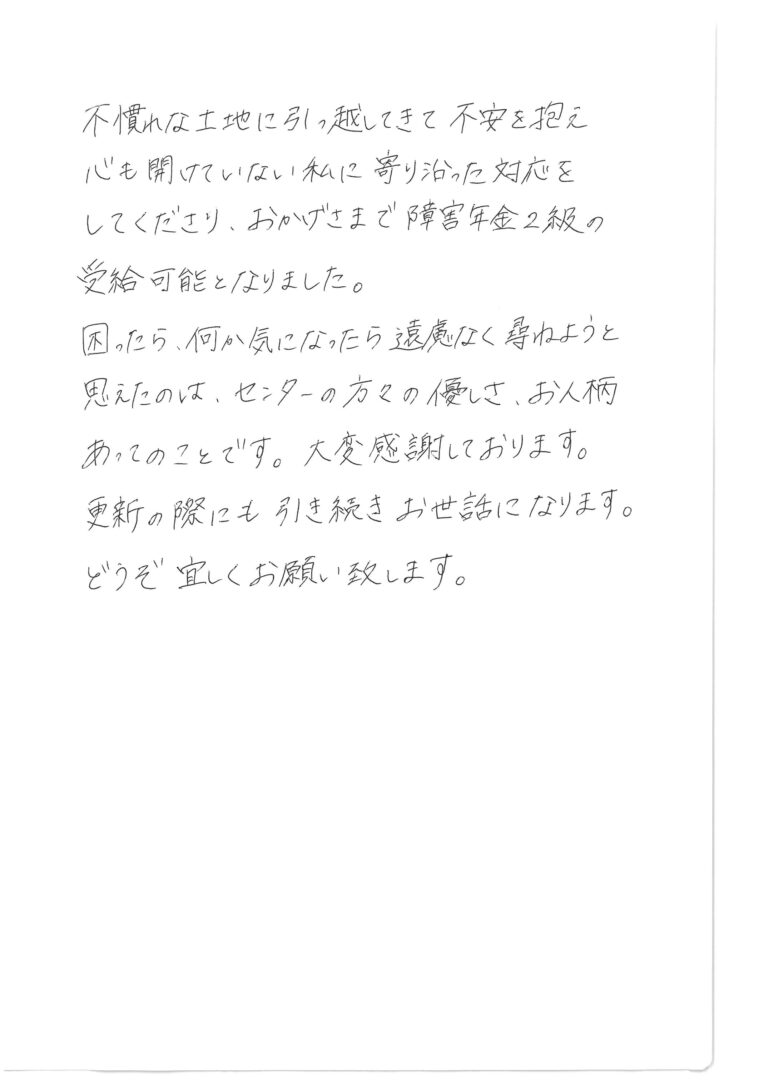 不慣れな土地に引っ越してきて不安を抱え
心も開けていない私に寄り沿った対応を
してくださり、おかげさまで障害年金2級の
受給可能となりました。
困ったら、何か気になったら遠慮なく尋ねようと
思えたのは、センターの方々の優しさ、お人柄
あってのことです。大変感謝しております。
更新の際にも引き続きお世話になります。
どうぞ宜しくお願い致します。